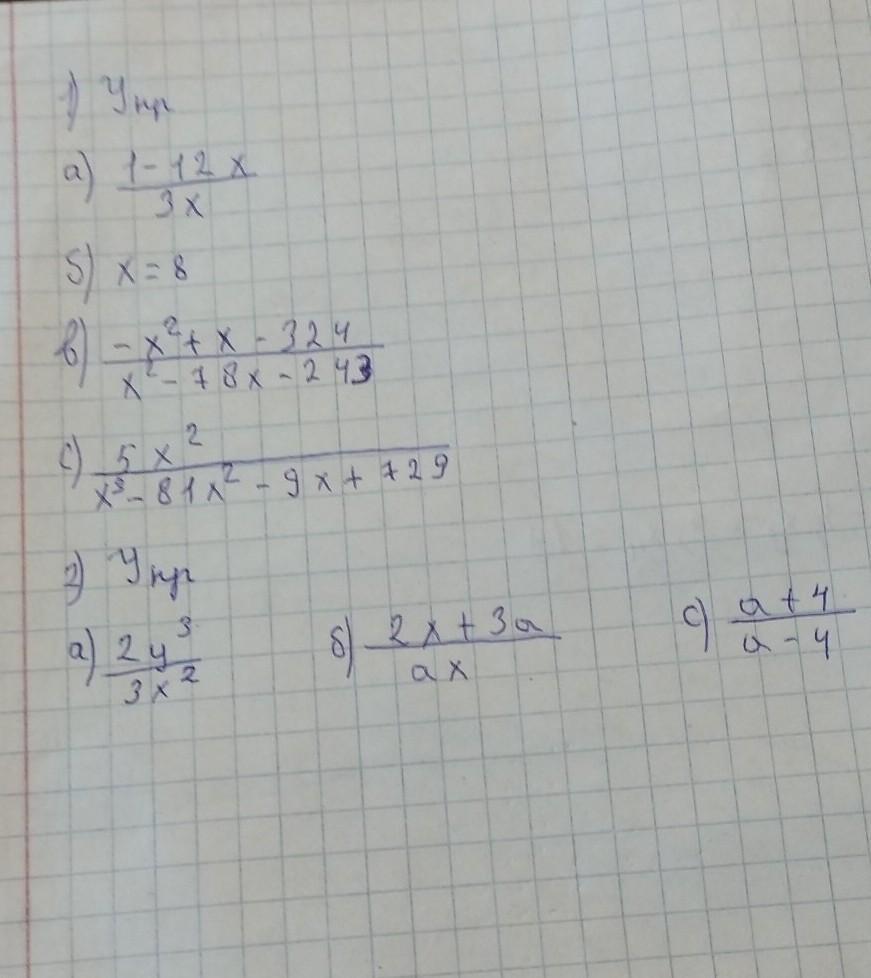 1) Упр
а) 1-12x
3x
б) x=8
в) -x²+x-324
x²-78x-243
с) 5x²
x³-81x²-9x+729
2) Упр
а) 2y³ б) 2x+3a с) a+4
3x² ax a-4